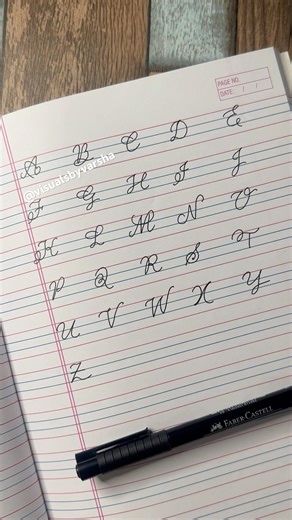 PAGE NO.
DATE: / /
A B C D E
@visualsbyvarsha
F G H I J
K L M N O
P Q R S T
U V W X Y
Z
FABER-CASTELL